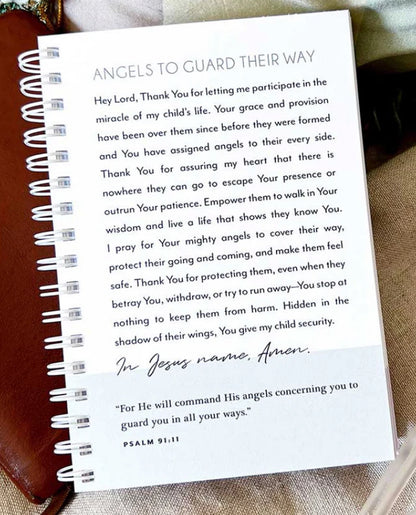 ANGELS TO GUARD THEIR WAY
Hey Lord, Thank You for letting me participate in the
miracle of my child's life. Your grace and provision
have been over them since before they were formed
and You have assigned angels to their every side.
Thank You for assuring my heart that there is
nowhere they can go to escape Your presence or
outrun Your patience. Empower them to walk in Your
wisdom and live a life that shows they know You.
I pray for Your mighty angels to cover their way,
protect their going and coming, and make them feel
safe. Thank You for protecting them, even when they
betray You, withdraw, or try to run away—You stop at
nothing to keep them from harm. Hidden in the
shadow of their wings, You give my child security.
In Jesus name, Amen.
"For He will command His angels concerning you to
guard you in all your ways."
PSALM 91:11